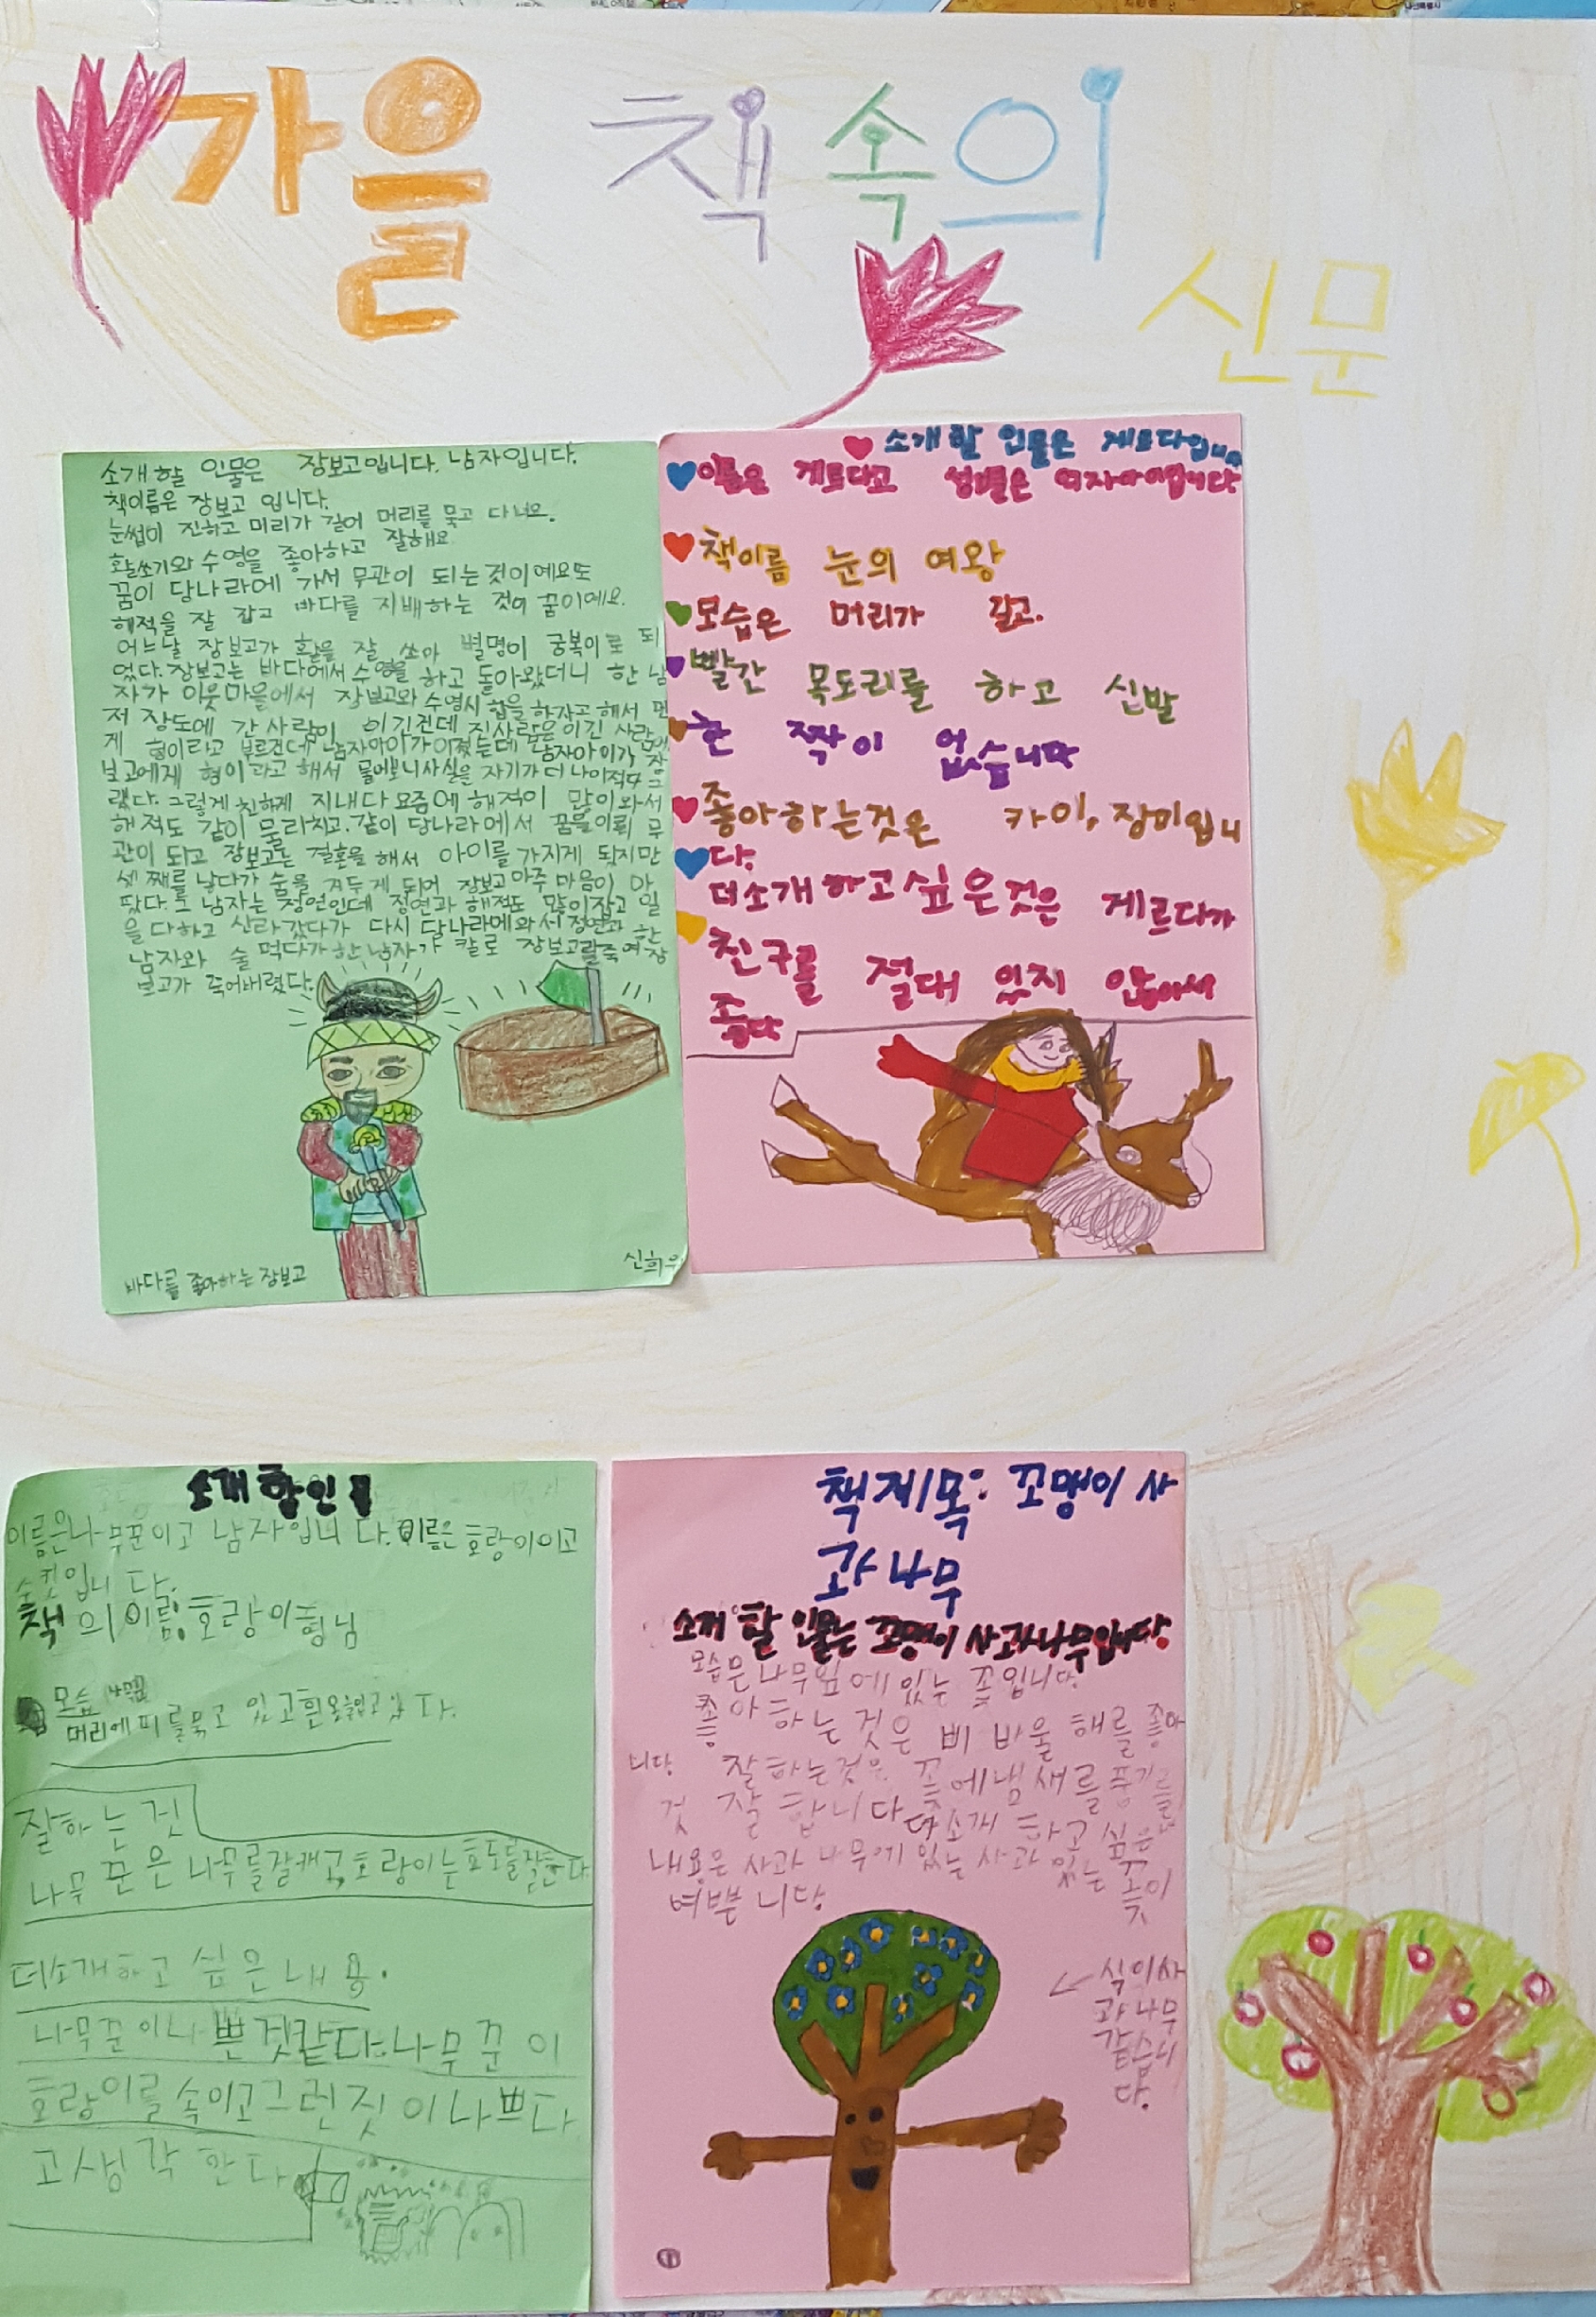 가을 책 속의
신문
소개할 인물은 장보고입니다. 남자입니다.
책이름은 장보고 입니다.
눈썹이 진하고 머리가 길어 머리를 묶고 다녀요.
활쏘기와 수영을 좋아하고 잘해요
꿈이 당나라에 가서 무관이 되는것이예요또
해적을 잘 잡고 바다를 지배하는 것이 꿈이예요.
어느날 장보고가 활을 잘 쏘아 별명이 궁복이로 되
었다. 장보고는 바다에서 수영을 하고 돌아왔더니 한 남
자가 이웃마을에서 장보고와 수영시합을 하자고 해서 먼
저 장도에 간 사람이 이긴건데 진사람은 이긴 사람에
게 형이라고 부르건데 남자아이가이겼는데 남자아이가 장
보고에게 형이라고 해서 물어보니사실은 자기가 더 나이적다 그
랬다. 그렇게 친하게 지내다 요즘에 해적이 많이와서
해적도 같이 물리치고. 같이 당나라에서 꿈을이뤄 무
관이 되고 장보고는 결혼을 해서 아이를 가지게 됬지만
셋째를 낳다가 숨을 거두게 되어 장보고 마주 마음이 아
팠다. 그 남자는 정연인데 정연과 해적도 많이잡고 일
을 다하고 신라갔다가 다시 당나라에와서 정연과 한
남자와 술 먹다가 한 남자가 칼로 장보고를죽여 장
보고가 죽어버렸다.
바다를 좋아하는 장보고
신희우
소개할 인물은 게르다입니다
이름은 게르다고 성별은 여자아이입니다
책이름 눈의 여왕
모습은 머리가 길고.
빨간 목도리를 하고 신발
한 짝이 없습니다
좋아하는것은 카이, 장미입니
다.
더소개하고싶은것은 게르다가
친구를 절대 잊지 않아서
좋다
소개할인물
이름은나무꾼이고 남자입니다. 이름은 호랑이이고
수컷입니다.
책의이름: 호랑이형님
모습 나무꾼
머리에띠를묶고 있고흰옷을입고있다.
잘하는것
나무꾼은 나무를잘캐고, 호랑이는효도를잘한다
더소개하고 싶은내용.
나무꾼이나쁜것같다. 나무꾼이
호랑이를속이고그런짓이나쁘다
고생각한다
책제목: 꼬맹이 사
과나무
소개 할 인물는 꼬맹이 사과나무입니다.
모습은나무잎에있는 꽃입니다.
좋아하는것은 비 바울 해를 좋아
니당 잘하는것은 꽃에냄새를풍기를
것 잘합니다 더소개 하고 싶은
내용은사과 나무에있는사과 있는 꽃이
여쁜니당
← 식이사
과나무
같습니
다.
①